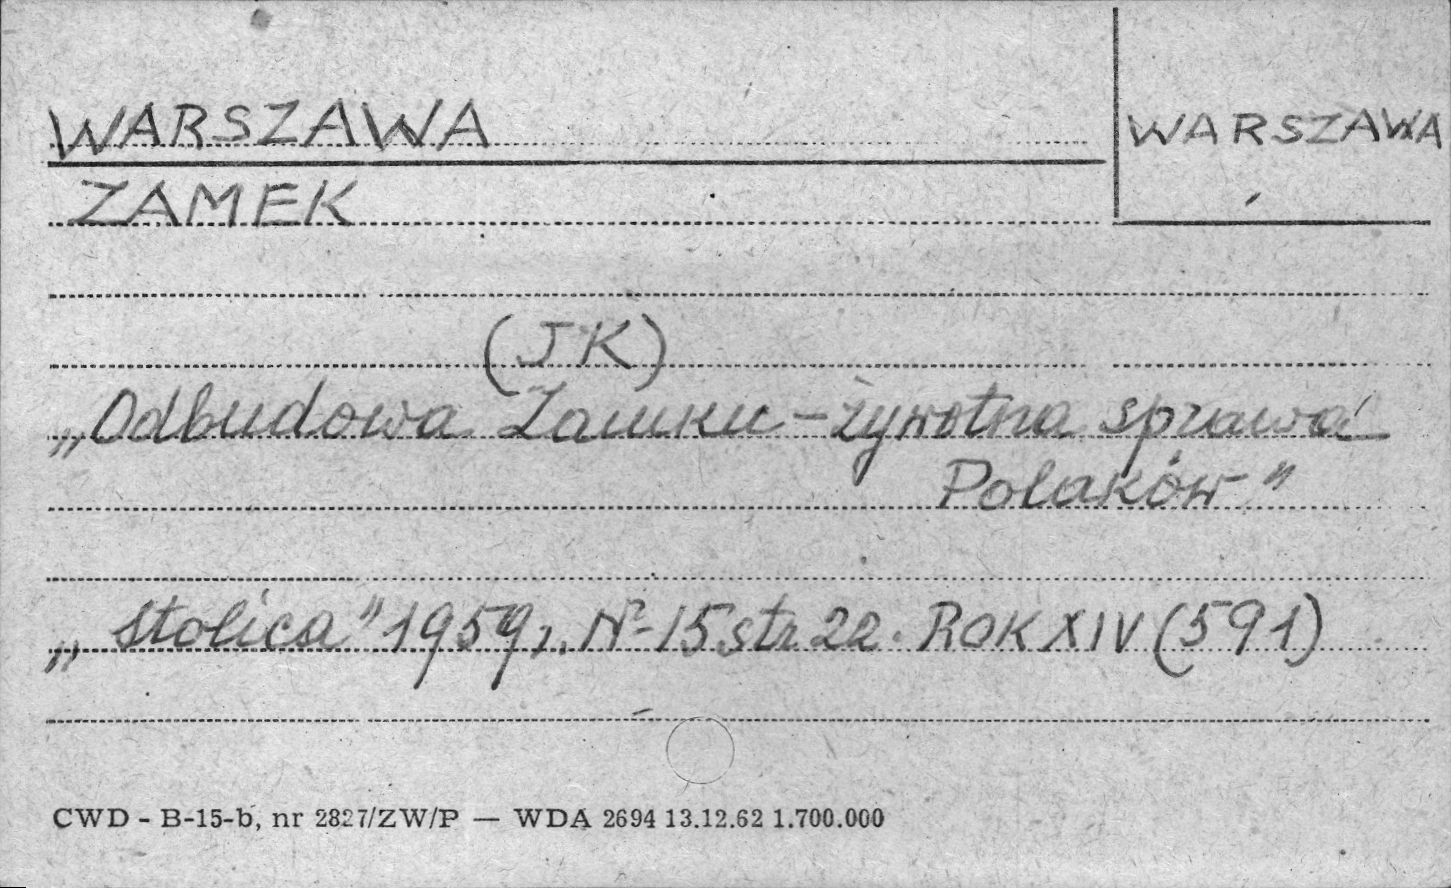 WARSZAWA
WARSZAWA
ZAMEK
(JK)
„Odbudowa Zamku – żywotna sprawa
Polaków"
„Stolica" 1959 r. Nr 15 str. 22. ROK XIV (591)
CWD - B-15-b, nr 2827/ZW/P — WDA 2694 13.12.62 1.700.000